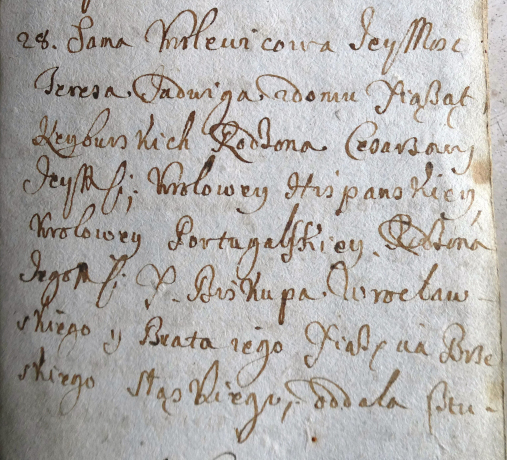 28. Sama Krolewicowa JeyMosc
Teresa Jadwiga zdomu Xiążąt
Neyburskich Rodzona Cesarzowy
JeyMsci, Krolowey Hispanskiey,
Krolowey Portugalskiey. Rodzona
JegoMsci P. Biskupa Wrocław-
skiego y Brata iego Xiążęcia Brze
skiego Sląskiego, oddala